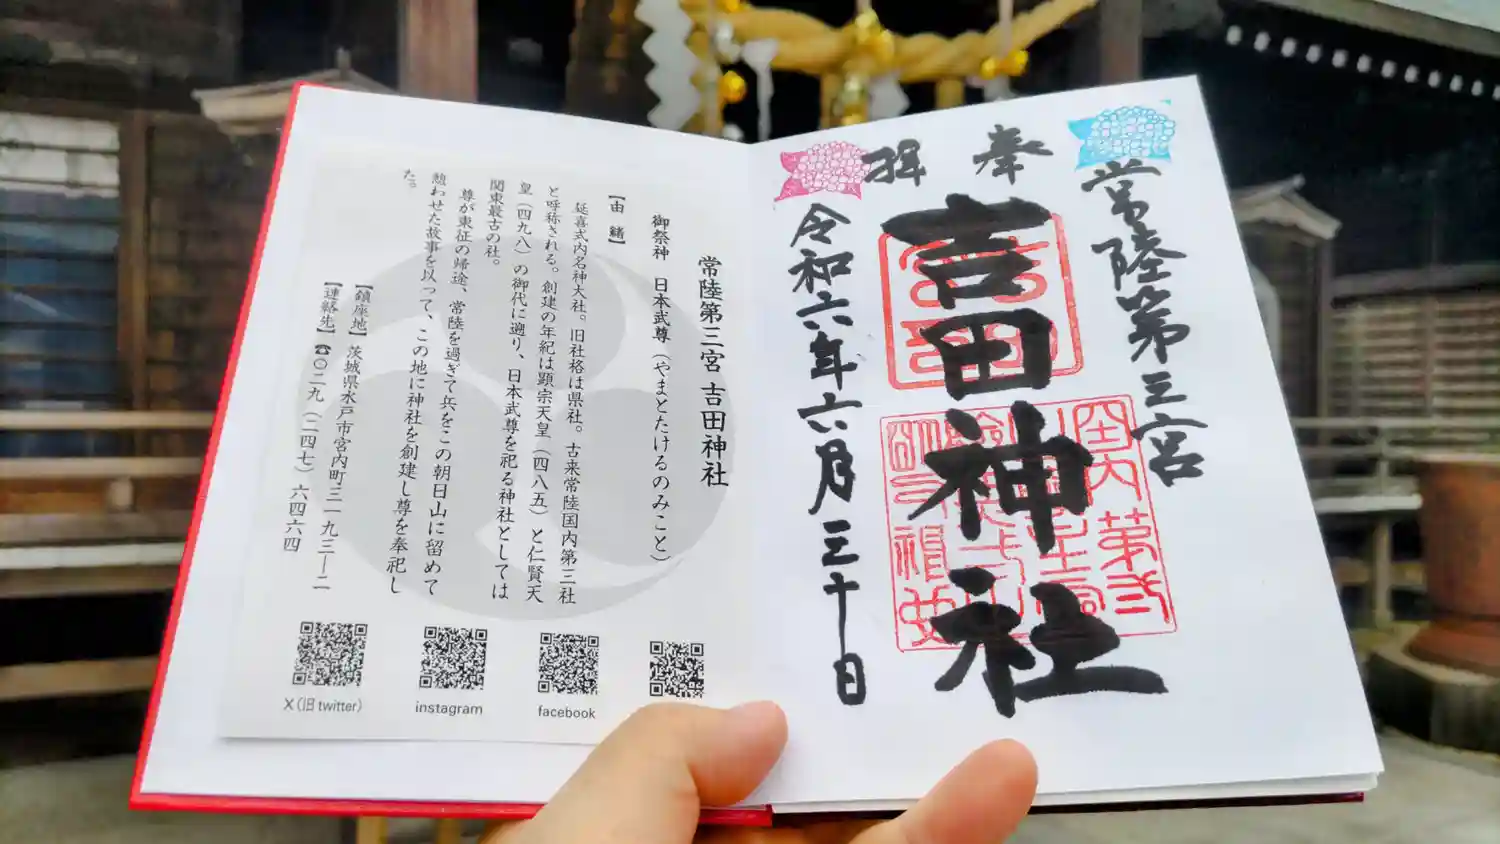 常陸第三宮
奉
拝
吉田神社
令和六年六月三十日
常陸第三宮 吉田神社
御祭神 日本武尊（やまとたけるのみこと）
【由 緒】
延喜式内名神大社。旧社格は県社。古来常陸国内第三社
と呼称される。創建の年紀は顕宗天皇（四八五）と仁賢天
皇（四九八）の御代に遡り、日本武尊を祀る神社としては
関東最古の社。
尊が東征の帰途、常陸を過ぎて兵をこの朝日山に留めて
憩わせた故事を以って、この地に神社を創建し尊を奉祀し
た。
【鎮座地】 茨城県水戸市宮内町三一九三―二
【連絡先】 ☎〇二九（二四七）六四六四
X（旧twitter）
instagram
facebook